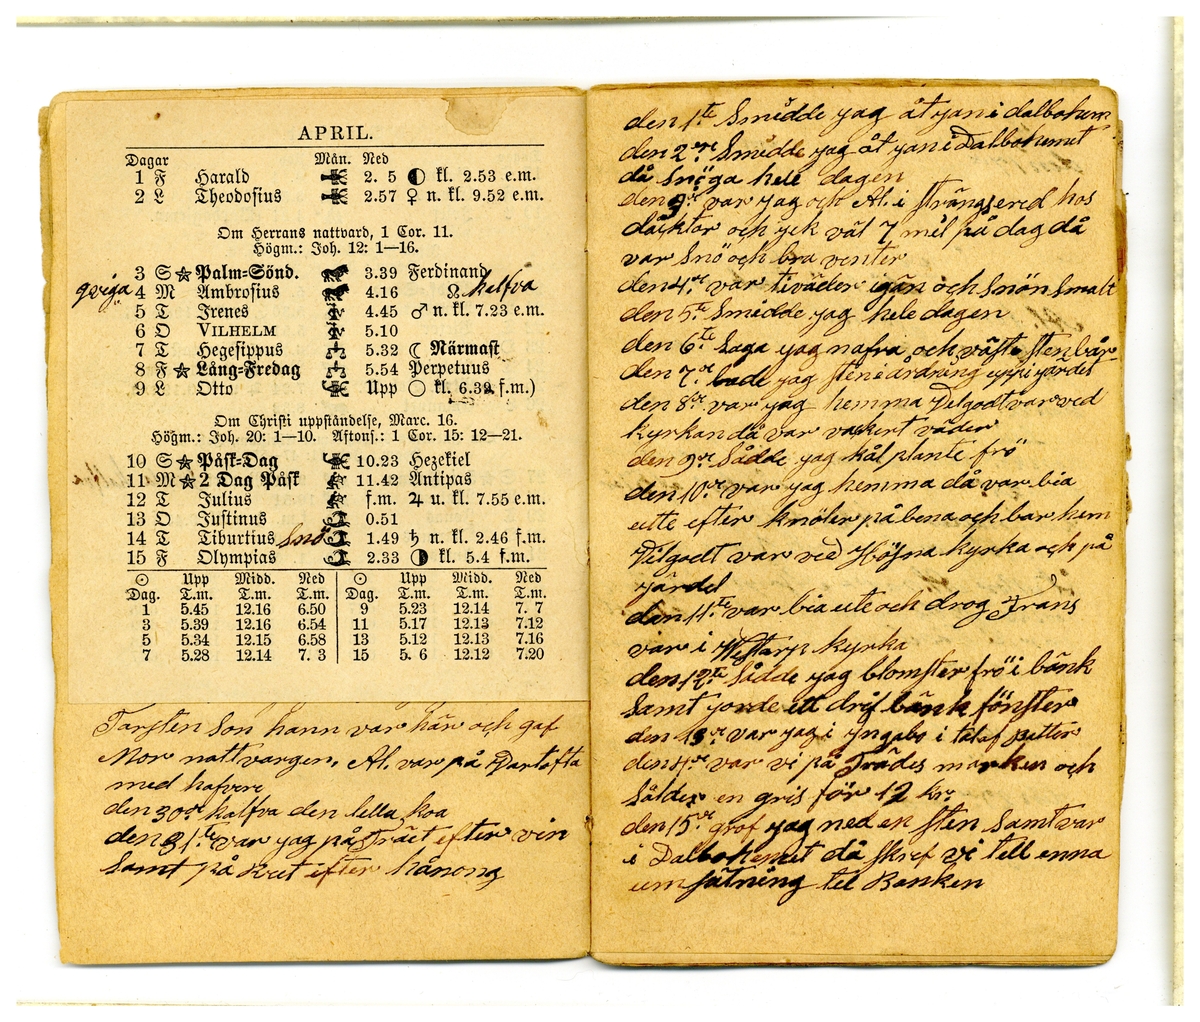 APRIL.
Dagar Mån. Ned
1 F Harald 2. 5 ◐ kl. 2.53 e.m.
2 L Theodosius 2.57 ♀ n. kl. 9.52 e.m.
Om Herrans nattvard, 1 Cor. 11.
Högm.: Joh. 12: 1—16.
3 S ☆ Palm=Sönd. 3.39 Ferdinand
qviga 4 M Ambrosius 4.16 ☊ kalfva
5 T Irenes 4.45 ♂ n. kl. 7.23 e.m.
6 O VILHELM 5.10
7 T Hegesippus 5.32 ☾ Närmast
8 F ☆ Lång=Fredag 5.54 Perpetuus
9 L Otto Upp ○ kl. 6.39 f.m.)
Om Christi uppståndelse, Marc. 16.
Högm.: Joh. 20: 1—10. Aftons.: 1 Cor. 15: 12—21.
10 S ☆ Påsk=Dag 10.23 Hezekiel
11 M ☆ 2 Dag Påsk 11.42 Antipas
12 T Julius f.m. ♃ u. kl. 7.55 e.m.
13 O Justinus 0.51
14 T Tiburtius Snö 1.49 ♄ n. kl. 2.46 f.m.
15 F Olympias 2.33 ◑ kl. 5.4 f.m.
☉ Upp Midd. Ned ☉ Upp Midd. Ned
Dag. T.m. T.m. T.m. Dag. T.m. T.m. T.m.
1 5.45 12.16 6.50 9 5.23 12.14 7. 7
3 5.39 12.16 6.54 11 5.17 12.13 7.12
5 5.34 12.15 6.58 13 5.12 12.13 7.16
7 5.28 12.14 7. 3 15 5. 6 12.12 7.20
Tarsten son hann var här och gaf
Mor nattvargen. Al. var på Dartofta
med hafvre
den 30de kalfva den lella koa
den 31te var yag på Träet efter vin
samt på efter hånong
den 1te Smidde yag åt yan i dalbohem
den 2dre Smidde yag åt yan i Dalbohemet
då Snöga hele dagen
den 3de var yag och Al. i Strängsered hos
dåcktor och yck väl 7 mil på dag då
var Snö och bra venter
den 4de var tiväder igän och Snön Smalt
den 5te Smidde yag hele dagen
den 6te Laga yag nafra och väste stenbår
den 7de lade yag sten i ordning uppi yardet
den 8de var yag hemma Velgodt var ved
kyrkan då var vackert väder
den 9de Sådde yag kål plante frö
den 10de var yag hemma då var bia
ute efter knöler på bena och bar hem
Velgodt var ved Höjna kyrka och på
yärdet
den 11te var bia ute och drog Frans
var i Westarp kyrka
den 12te Sådde yag blomster frö i bänk
Samt yorde ett drif bänk fönster
den 13de var yag i Yngabo i talaf patter
den 4de var vi på Trädes marken och
Sålde en gris för 12 kr.
den 15de grof yag ned en sten Samt var
i Dalbohemet då Skref vi tell enna
um sätning tel Banken